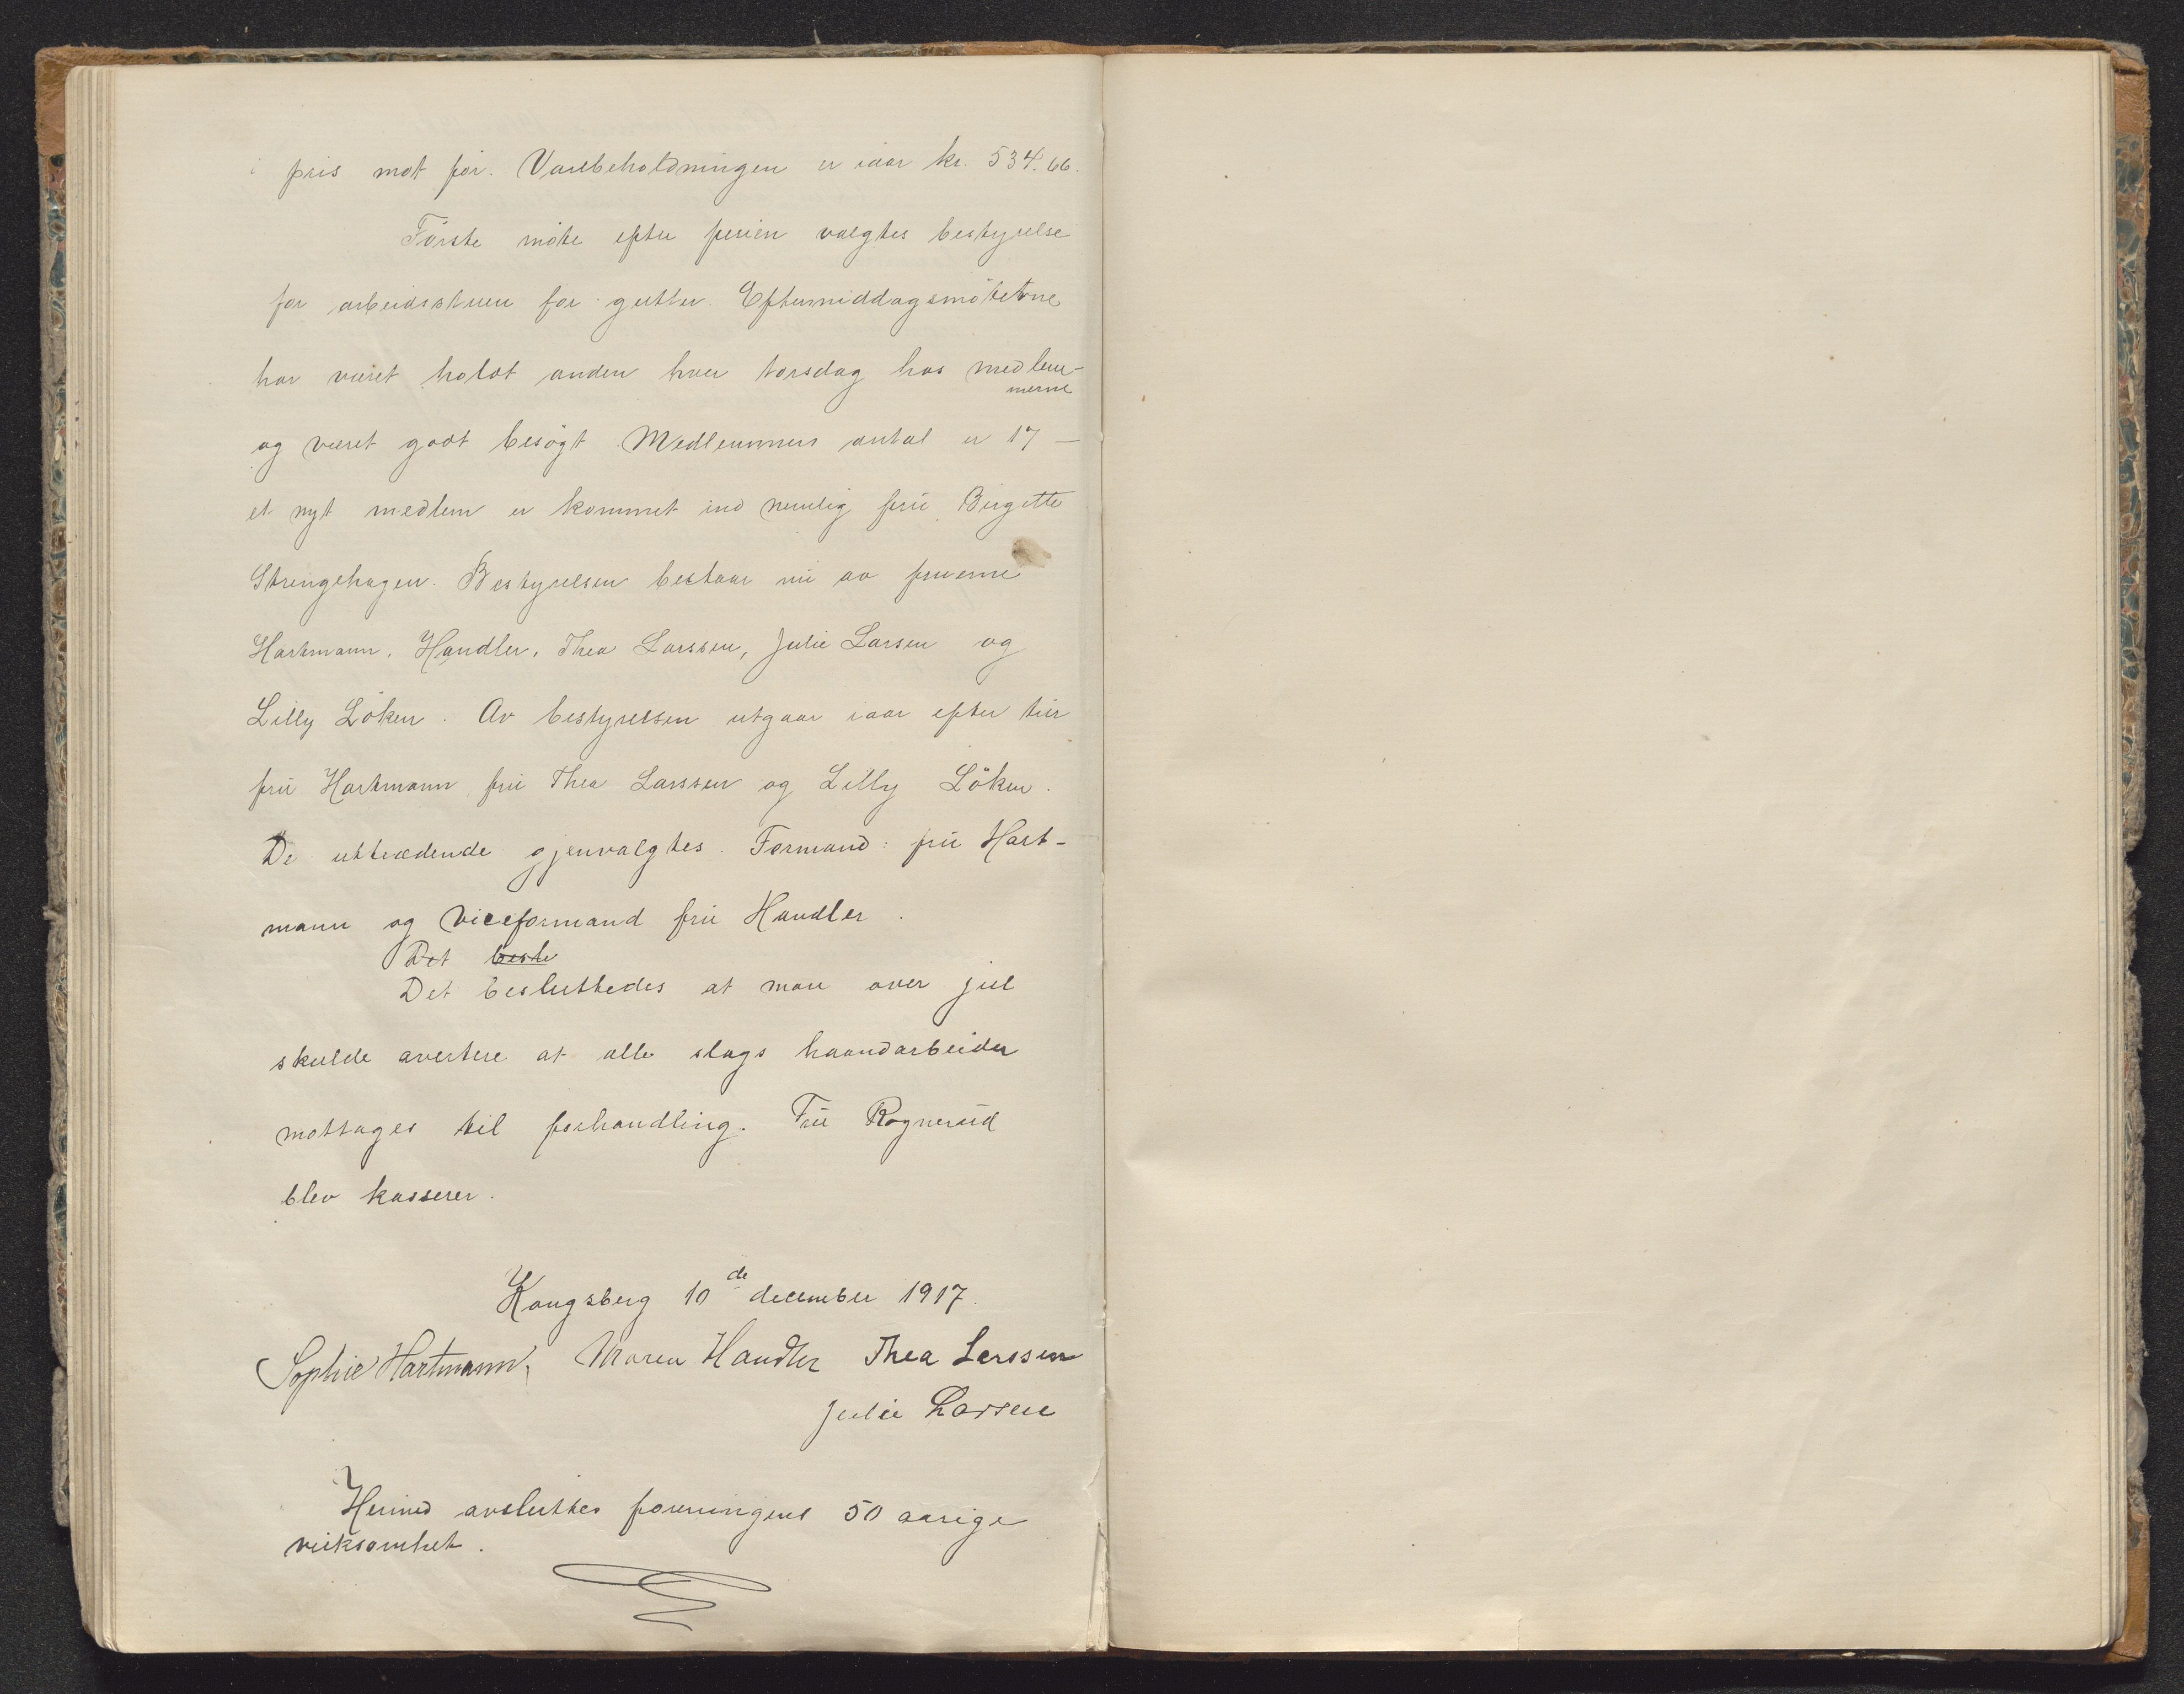 i pris mot för. Varebeholdningen er iaar kr. 534.66.
Förste möte efter ferien valgtes bestyrelse
for arbeidsstuen for gutter. Eftermiddagsmöterne
har været holdt anden hver torsdag hos medlem-
merne
og været godt besögt. Medlemmers antal er 17 –
et nyt medlem er kommet ind nemlig frü Birgitte
Strengehagen. Bestyrelsen bestaar nü av fruerne
Hartmann, Handler, Thea Larssen, Julie Larsen og
Lilly Löken. Av bestyrelsen utgaar iaar efter tür
frü Hartmann, frü Thea Larssen og Lilly Löken.
De uttrædende gjenvalgtes. Formand: frü Hart-
mann og viceformand frü Handler.
Det beste
Det besluttedes at man over jul
skulde avertere at alle slags haandarbeider
mottages til forhandling. Frü Rognerud
blev kasserer.
Kongsberg 10de december 1917.
Sophie Hartmann, Maren Handler Thea Larssen
Julie Larsen
Hermed avsluttes foreningens 50 aarige
virksomhet.